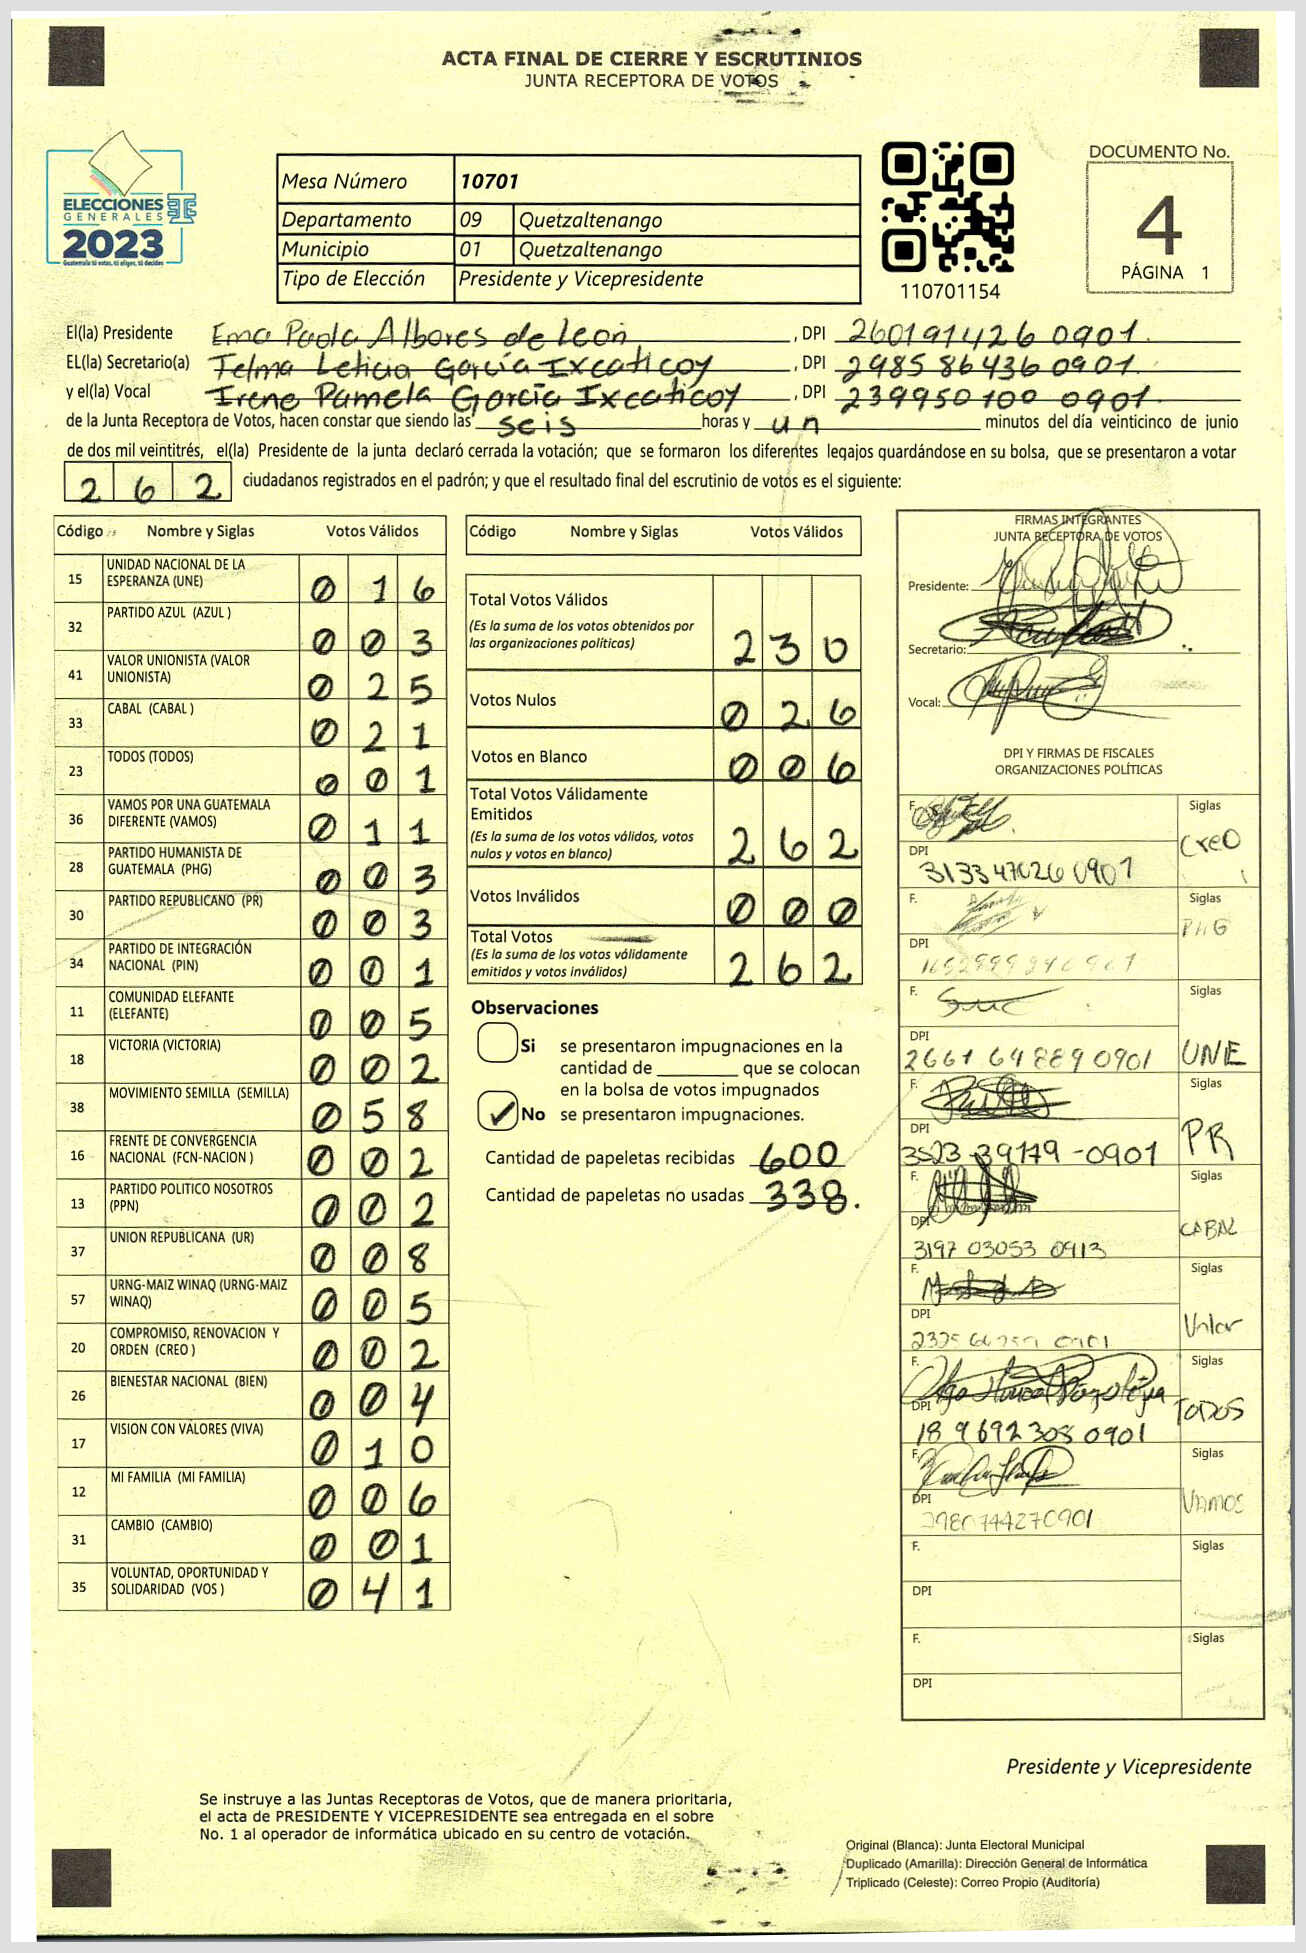 ACTA FINAL DE CIERRE Y ESCRUTINIOS
JUNTA RECEPTORA DE VOTOS
ELECCIONES
GENERALES
2023
Guatemala tú votas, tú eliges, tú decides
Mesa Número 10701
Departamento 09 Quetzaltenango
Municipio 01 Quetzaltenango
Tipo de Elección Presidente y Vicepresidente
110701154
DOCUMENTO No.
4
PÁGINA 1
El(la) Presidente Ema Paola Albores de León, DPI 260191426 0901.
EL(la) Secretario(a) Telma Leticia García Ixcaticoy, DPI 2985 86436 0901.
y el(la) Vocal Irene Pamela García Ixcaticoy, DPI 239950100 0901.
de la Junta Receptora de Votos, hacen constar que siendo las seis horas y un minutos del día veinticinco de junio
de dos mil veintitrés, el(la) Presidente de la junta declaró cerrada la votación; que se formaron los diferentes legajos guardándose en su bolsa, que se presentaron a votar
262 ciudadanos registrados en el padrón; y que el resultado final del escrutinio de votos es el siguiente:
Código Nombre y Siglas Votos Válidos
15 UNIDAD NACIONAL DE LA ESPERANZA (UNE) 016
32 PARTIDO AZUL (AZUL ) 003
41 VALOR UNIONISTA (VALOR UNIONISTA) 025
33 CABAL (CABAL ) 021
23 TODOS (TODOS) 001
36 VAMOS POR UNA GUATEMALA DIFERENTE (VAMOS) 011
28 PARTIDO HUMANISTA DE GUATEMALA (PHG) 003
30 PARTIDO REPUBLICANO (PR) 003
34 PARTIDO DE INTEGRACIÓN NACIONAL (PIN) 001
11 COMUNIDAD ELEFANTE (ELEFANTE) 005
18 VICTORIA (VICTORIA) 002
38 MOVIMIENTO SEMILLA (SEMILLA) 058
16 FRENTE DE CONVERGENCIA NACIONAL (FCN-NACION ) 002
13 PARTIDO POLITICO NOSOTROS (PPN) 002
37 UNION REPUBLICANA (UR) 008
57 URNG-MAIZ WINAQ (URNG-MAIZ WINAQ) 005
20 COMPROMISO, RENOVACION Y ORDEN (CREO ) 002
26 BIENESTAR NACIONAL (BIEN) 004
17 VISION CON VALORES (VIVA) 010
12 MI FAMILIA (MI FAMILIA) 006
31 CAMBIO (CAMBIO) 001
35 VOLUNTAD, OPORTUNIDAD Y SOLIDARIDAD (VOS ) 041
Código Nombre y Siglas Votos Válidos
Total Votos Válidos 230
(Es la suma de los votos obtenidos por
las organizaciones políticas)
Votos Nulos 026
Votos en Blanco 006
Total Votos Válidamente
Emitidos 262
(Es la suma de los votos válidos, votos
nulos y votos en blanco)
Votos Inválidos 000
Total Votos 262
(Es la suma de los votos válidamente
emitidos y votos inválidos)
Observaciones
Si se presentaron impugnaciones en la
cantidad de ________ que se colocan
en la bolsa de votos impugnados
✓ No se presentaron impugnaciones.
Cantidad de papeletas recibidas 600
Cantidad de papeletas no usadas 338.
FIRMAS INTEGRANTES
JUNTA RECEPTORA DE VOTOS
Presidente:
Secretario:
Vocal:
DPI Y FIRMAS DE FISCALES
ORGANIZACIONES POLÍTICAS
F. Siglas CREO
DPI 313347026 0901
F. Siglas PHG
DPI
F. Siglas UNE
DPI 2661 64889 0901
F. Siglas PR
DPI 3523-39179-0901
F. Siglas CABAL
DPI 3197 03053 0913
F. Siglas Valor
DPI
F. Siglas TODOS
DPI 18 9692308 0901
F. Siglas VAMOS
DPI
F. Siglas
DPI
F. Siglas
DPI
Presidente y Vicepresidente
Se instruye a las Juntas Receptoras de Votos, que de manera prioritaria,
el acta de PRESIDENTE Y VICEPRESIDENTE sea entregada en el sobre
No. 1 al operador de informática ubicado en su centro de votación.
Original (Blanca): Junta Electoral Municipal
Duplicado (Amarilla): Dirección General de Informática
Triplicado (Celeste): Correo Propio (Auditoría)